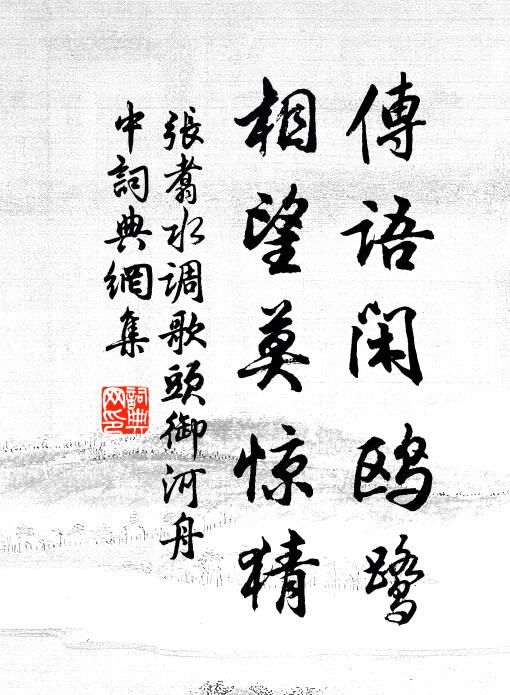 傳語閑鸥鷺
相望莫惊猜
張翥水调歌頭御河舟
中詞典網集
詞典
网印